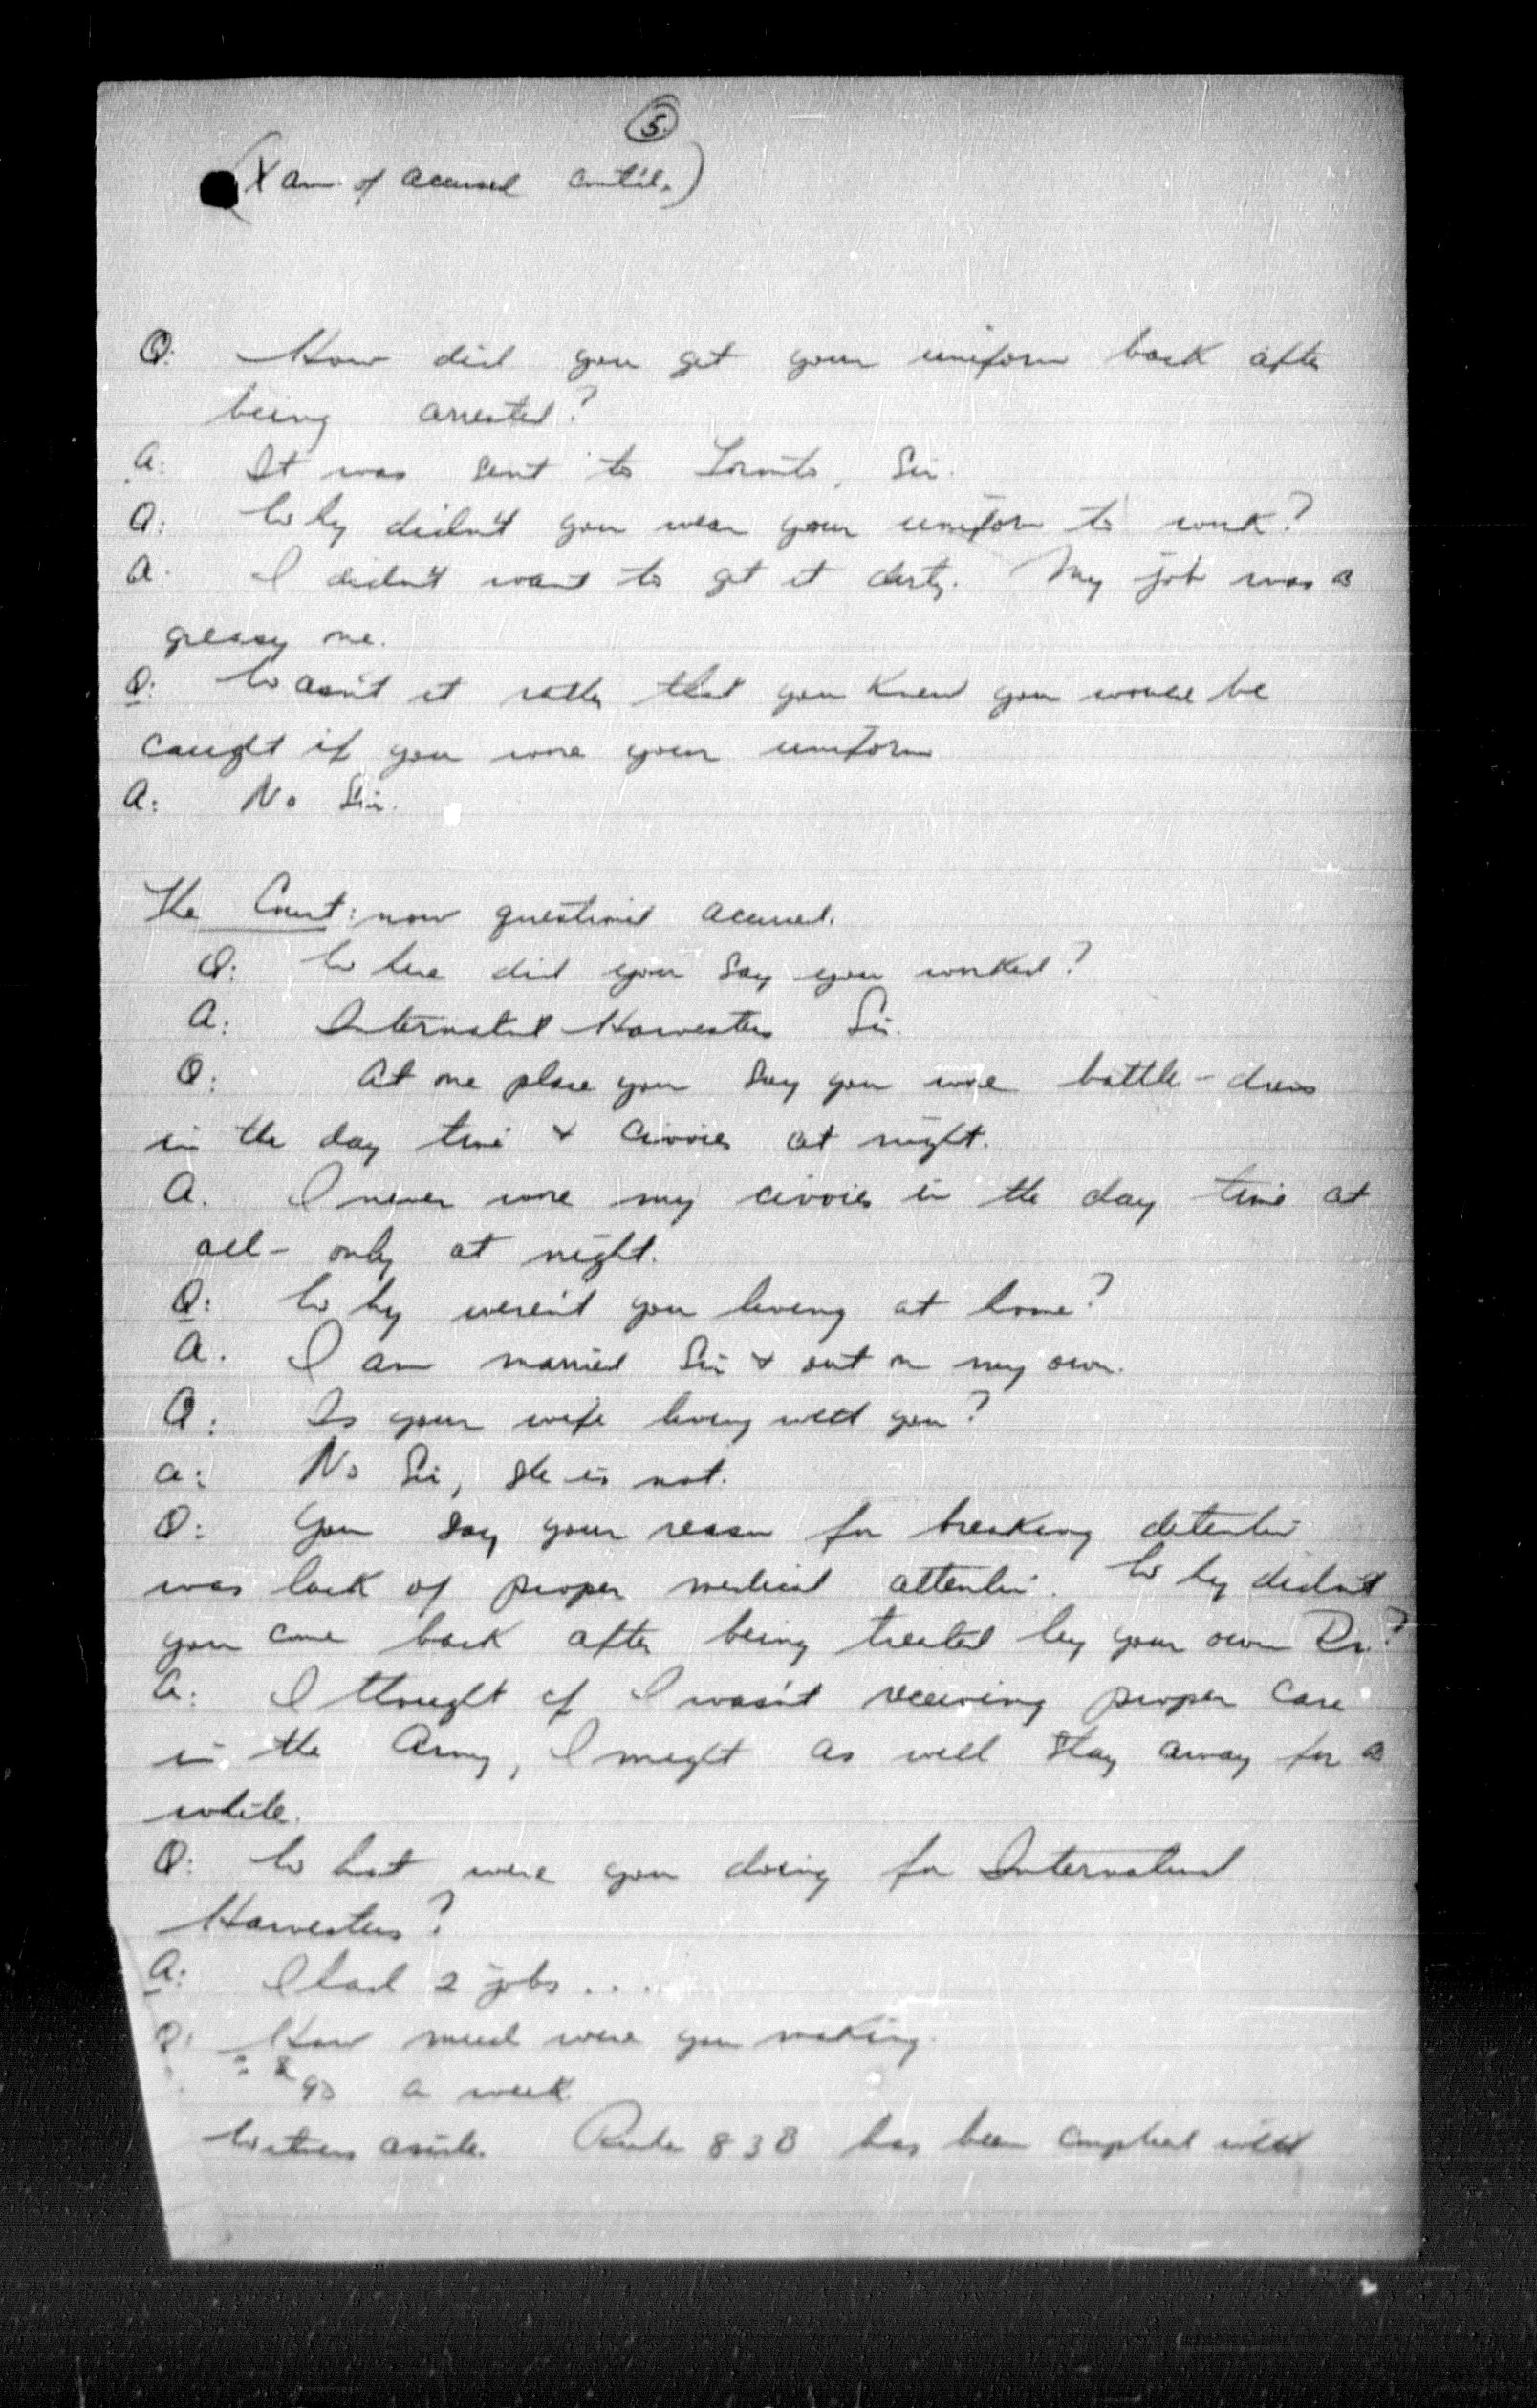 5.
(X am. of accused cont'd.)
Q: How did you get your uniform back after
being arrested?
A: It was sent to Toronto, Sir.
Q: Why didn't you wear your uniform to work?
A: I didn't want to get it dirty. My job was a
greasy one.
Q: Wasn't it rather that you knew you would be
caught if you wore your uniform
A: No Sir.
The Court: now questioned accused.
Q: Where did you say you worked?
A: International Harvesters Sir.
Q: At one place you say you wore battle-dress
in the day time & civvies at night.
A. I never wore my civvies in the day time at
all - only at night.
Q: Why weren't you living at home?
A. I am married Sir & out on my own.
Q: Is your wife living with you?
A: No Sir, she is not.
Q: You say your reason for breaking detention
was lack of proper medical attention. Why didn't
you come back after being treated by your own Dr.?
A: I thought if I wasn't receiving proper care
in the Army, I might as well stay away for a
while.
Q: What were you doing for International
Harvesters?
A: I had 2 jobs . . .
Q: How much were you making.
a week.
Witness aside. Rule 83B has been complied with